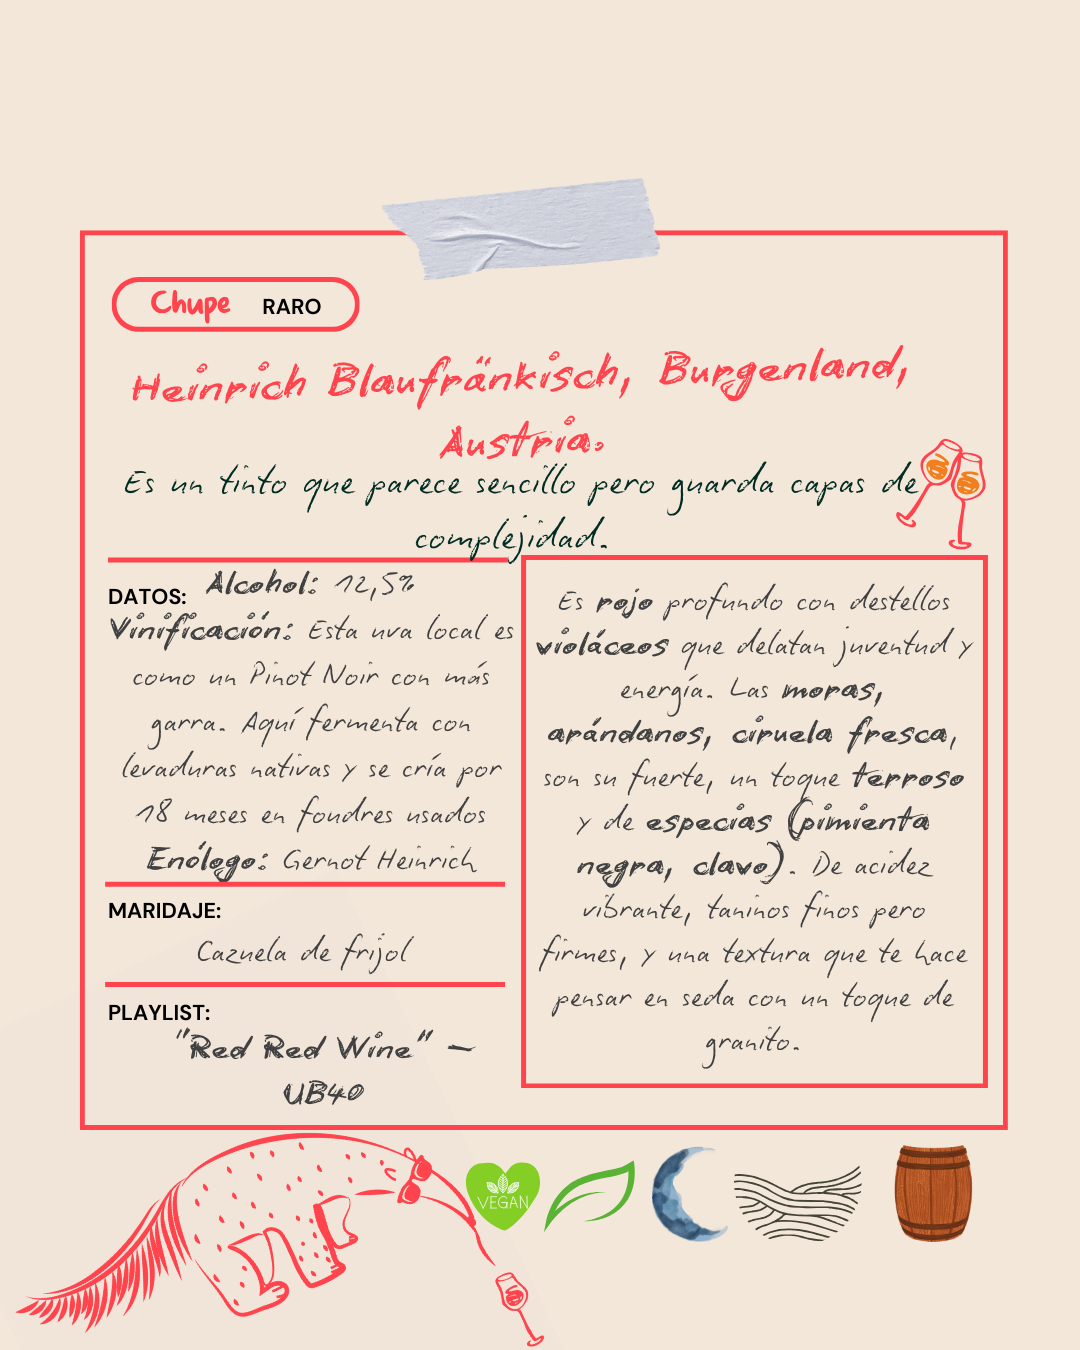 Chupe RARO
Heinrich Blaufränkisch, Burgenland,
Austria.
Es un tinto que parece sencillo pero guarda capas de
complejidad.
DATOS: Alcohol: 12,5%
Vinificación: Esta uva local es
como un Pinot Noir con más
garra. Aquí fermenta con
levaduras nativas y se cría por
18 meses en foudres usados
Enólogo: Gernot Heinrich
MARIDAJE:
Cazuela de frijol
PLAYLIST:
"Red Red Wine" –
UB40
Es rojo profundo con destellos
violáceos que delatan juventud y
energía. Las moras,
arándanos, ciruela fresca,
son su fuerte, un toque terroso
y de especias (pimienta
negra, clavo). De acidez
vibrante, taninos finos pero
firmes, y una textura que te hace
pensar en seda con un toque de
granito.
VEGAN